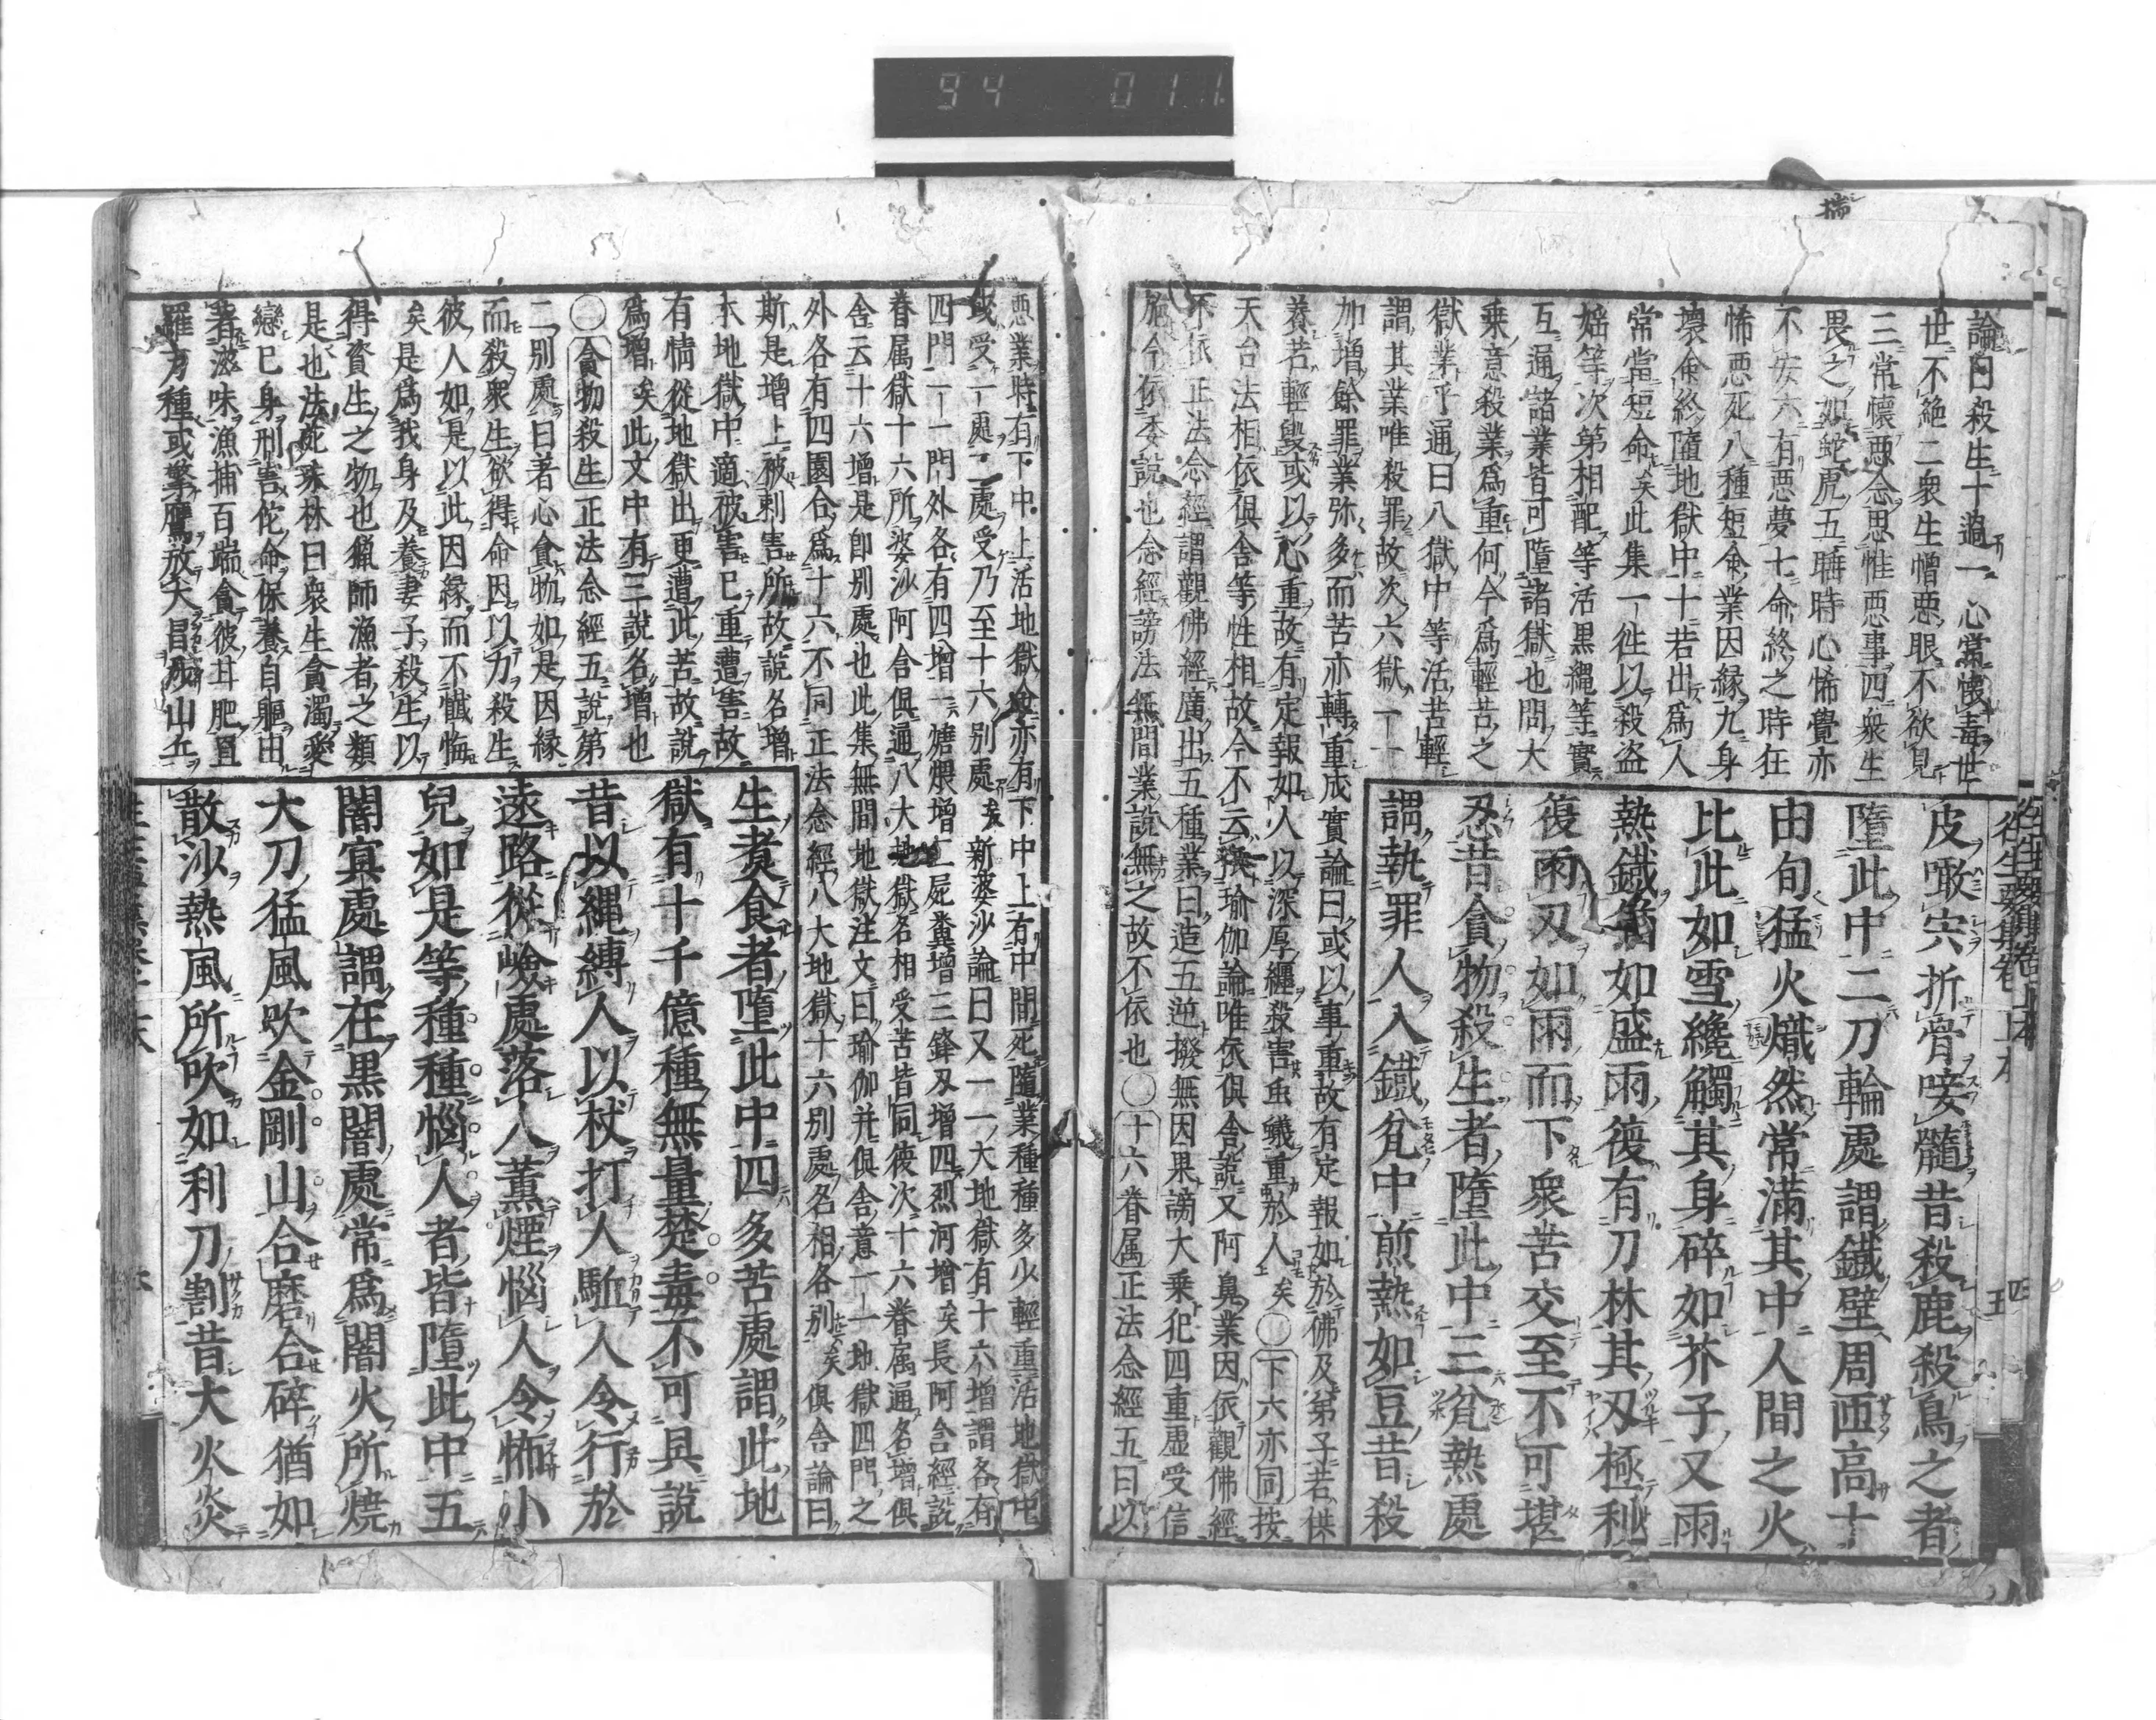 94 011
論曰殺生十過一心常懷毒世
世不絶二衆生憎惡眼不欲見
三常懷惡念思惟惡事四衆生
畏之如蛇虎五睡時心怖覺亦
不安六有惡夢七命終之時狂
怖惡死八種短命業因縁九身
壞命終墮地獄中十若出爲人
常當短命矣此集一徃以殺盜
婬等次第相配等活黒繩等實
互通諸業皆可墮諸獄也問大
乗意殺業爲重何今爲輕苦之
獄業乎通曰八獄中等活苦輕
謂其業唯殺罪故次六獄一一
加増餘罪業弥多而苦亦轉重成實論曰或以事重故有定報如於佛及弟子若供
養若輕毀或以心重故有定報如人以深厚纒殺害虫蟻重於人矣〇下六亦同按
天台法相依倶舍等性相故今不云瑜伽論唯依倶舍説又阿鼻業因依觀佛經
不依正法念經謂觀佛經廣出五種業曰造五逆撥無因果謗大乗犯四重虚受信
施今依委説也念經謗法無間業説無之故不依也〇十六眷属正法念經五曰以
皮噉宍折骨唼髓昔殺鹿殺鳥之者
墮此中二刀輪處謂鐵壁周迊高十
由旬猛火熾然常滿其中人間之火
比此如雪纔觸其身碎如芥子又雨
熱鐵猶如盛雨復有刀林其刃極利
復雨刃如雨而下衆苦交至不可堪
忍昔貪物殺生者墮此中三瓮熱處
謂執罪人入鐵瓮中煎熱如豆昔殺
往生要集卷上本
四
五
惡業時有下中上活地獄亦有下中上有中間死隨業種種多少輕重活地獄中
或受一處二處受乃至十六別處矣新婆沙論曰又一一大地獄有十六増謂各有
四門一一門外各有四増一煻煨増二屍糞増三鋒刃増四烈河増矣長阿含經説
眷属獄十六所婆沙阿含倶通八大地獄名相受苦皆同彼次十六眷属通名増倶
舍云十六増是即別處也此集無間地獄注文曰瑜伽并倶舍意一一地獄四門之
外各有四園合爲十六不同正法念經八大地獄十六別處名相各別矣倶舍論曰
斯是増上被刺害所故説名増
本地獄中適被害已重遭害故
有情從地獄出更遭此苦故説
爲増矣此文中有三説名増也
〇貪物殺生正法念經五説第
二別處曰著心貪物如是因縁
而殺衆生欲得命因以力殺生
彼人如是以此因縁而不懺悔
矣是爲我身及養妻子殺生以
得資生之物也猟師漁者之類
是也法苑珠林曰衆生貪濁愛
戀已身刑害佗命保養自軀由
著滋味漁捕百端貪彼甘肥罝
羅万種或挚鷹放犬冒歴山丘
生煮食者墮此中四多苦處謂此地
獄有十千億種無量楚毒不可具説
昔以縄縛人以杖打人駈人令行於
遠路從嶮處落人薫煙惱人令怖小
兒如是等種種惱人者皆墮此中五
闇冥處謂在黒闇處常爲闇火所燒
大刀猛風吹金剛山合磨合碎猶如
散沙熱風所吹如利刀割昔大火炎